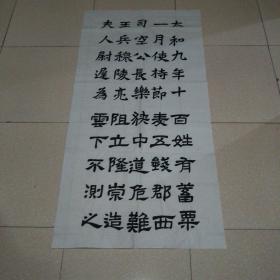 太和九年十
一月使持節
司空公長樂
王兵穆陵亮
夫人尉遲為
百姓有蓄粟
麦五錢郡西
狹中道危難
阻立隆崇造
雲下不測之